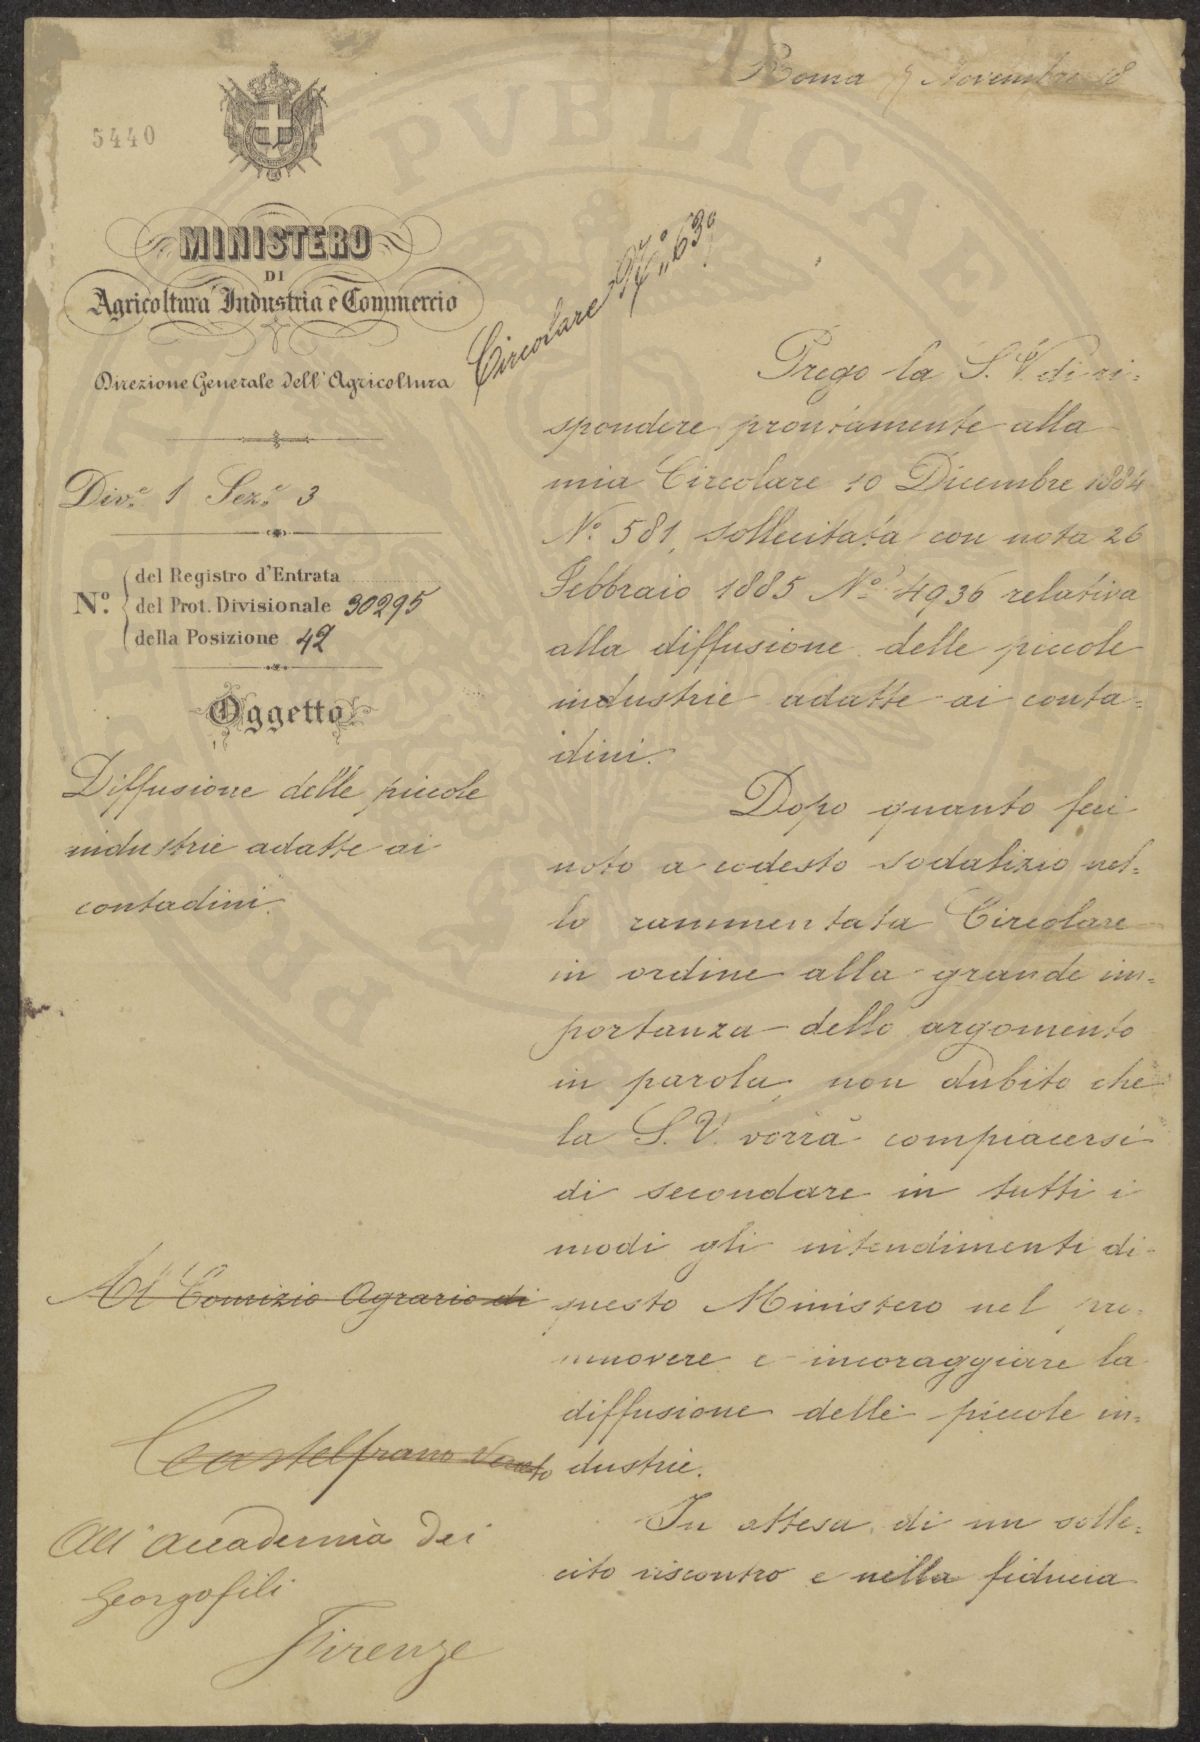 Roma 7 Novembre 18
5440
MINISTERO
DI
Agricoltura Industria e Commercio
Direzione Generale dell'Agricoltura
Circolare N.° 63
Div.e 1 Sez.e 3
N.°
del Registro d'Entrata
del Prot. Divisionale 30295
della Posizione 42
Oggetto
Diffusione delle piccole
industrie adatte ai
contadini.
Al Comizio Agrario di
Castelfranco Veneto
All'Accademia dei
Georgofili
Firenze
Prego la S. V. di ri=
spondere prontamente alla
mia Circolare 10 Dicembre 1884
N.° 581, sollecitata con nota 26
Febbraio 1885 N.° 4936 relativa
alla diffusione delle piccole
industrie adatte ai conta=
dini.
Dopo quanto feci
noto a codesto sodalizio nel=
la rammentata Circolare
in ordine alla grande im=
portanza dello argomento
in parola, non dubito che
la S. V. vorrà compiacersi
di secondare in tutti i
modi gli intendimenti di
questo Ministero nel pro=
muovere e incoraggiare la
diffusione delle piccole in=
dustrie.
In attesa di un solle=
cito riscontro e nella fiducia
PVBLICAE